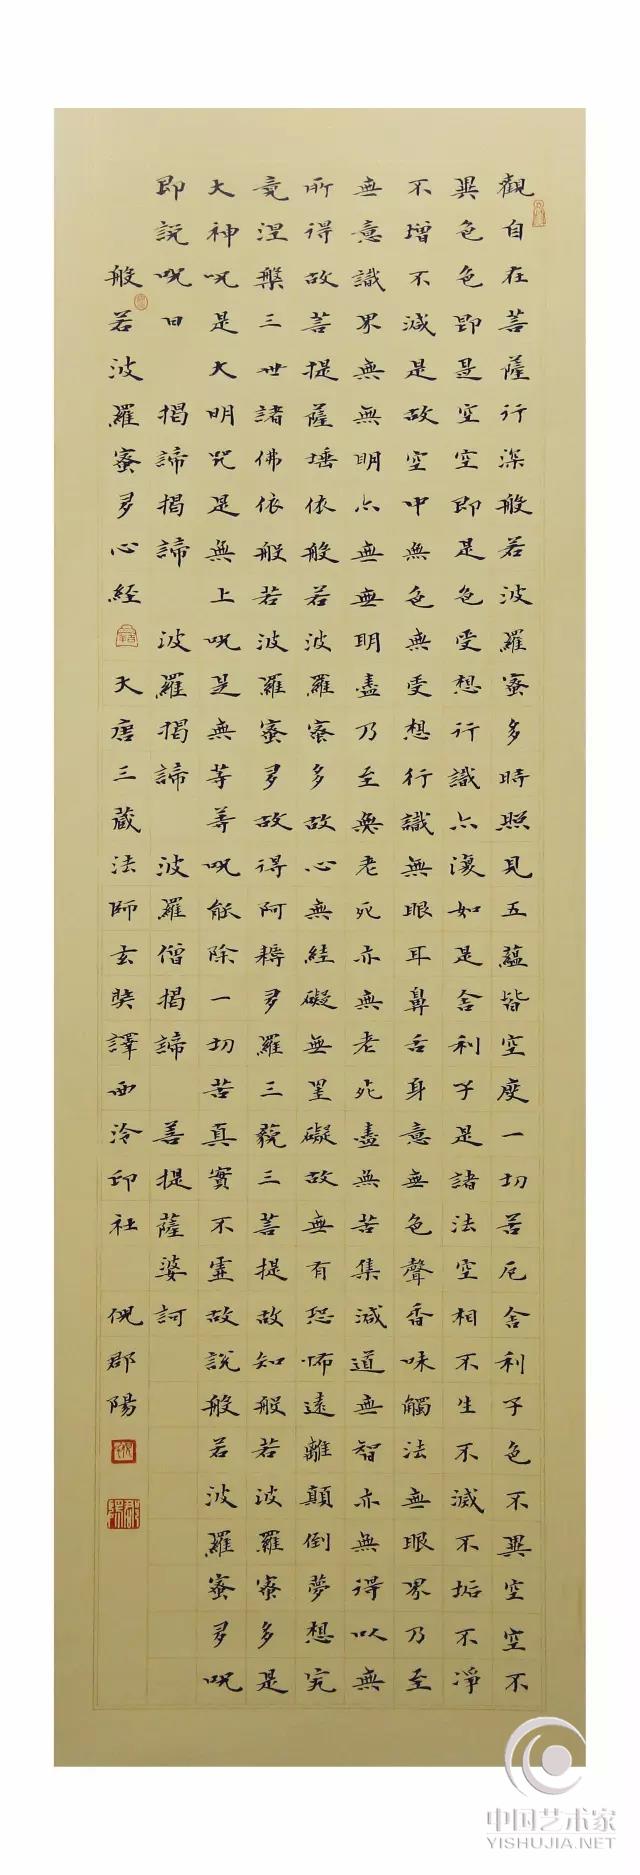 觀自在菩薩行深般若波羅蜜多時照見五蘊皆空度一切苦厄舍利子色不異空空不
異色色即是空空即是色受想行識亦復如是舍利子是諸法空相不生不滅不垢不淨
不增不減是故空中無色無受想行識無眼耳鼻舌身意無色聲香味觸法無眼界乃至
無意識界無無明亦無無明盡乃至無老死亦無老死盡無苦集減道無智亦無得以無
所得故菩提薩埵依般若波羅蜜多故心無絓礙無罣礙故無有恐怖遠離顛倒夢想究
竟涅槃三世諸佛依般若波羅蜜多故得阿耨多羅三藐三菩提故知般若波羅蜜多是
大神呪是大明咒是無上呪是無等等呪能除一切苦真實不虛故說般若波羅蜜多呪
即說呪曰 揭諦揭諦 波羅揭諦 波羅僧揭諦 菩提薩婆訶
般若波羅蜜多心経 大唐三藏法師玄奘譯西泠印社 倪郡陽
中国艺术家
YISHUJIA.NET